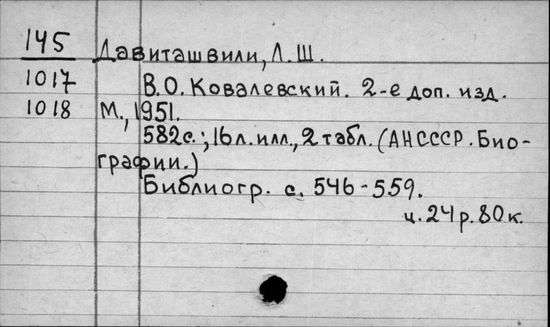 145
Давиташвили, Л.Ш.
1017
В.О. Ковалевский. 2-е доп. изд.
1018
М., 1951.
582с.; 16л.илл., 2 табл. (АНСССР. Био-
графии.)
Библиогр. с. 546-559.
ц. 24р. 80к.